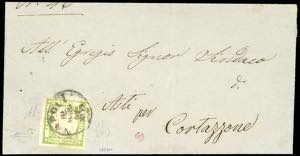 All' Egregio Signor Sindaco
di
Asti per
Cortazzone